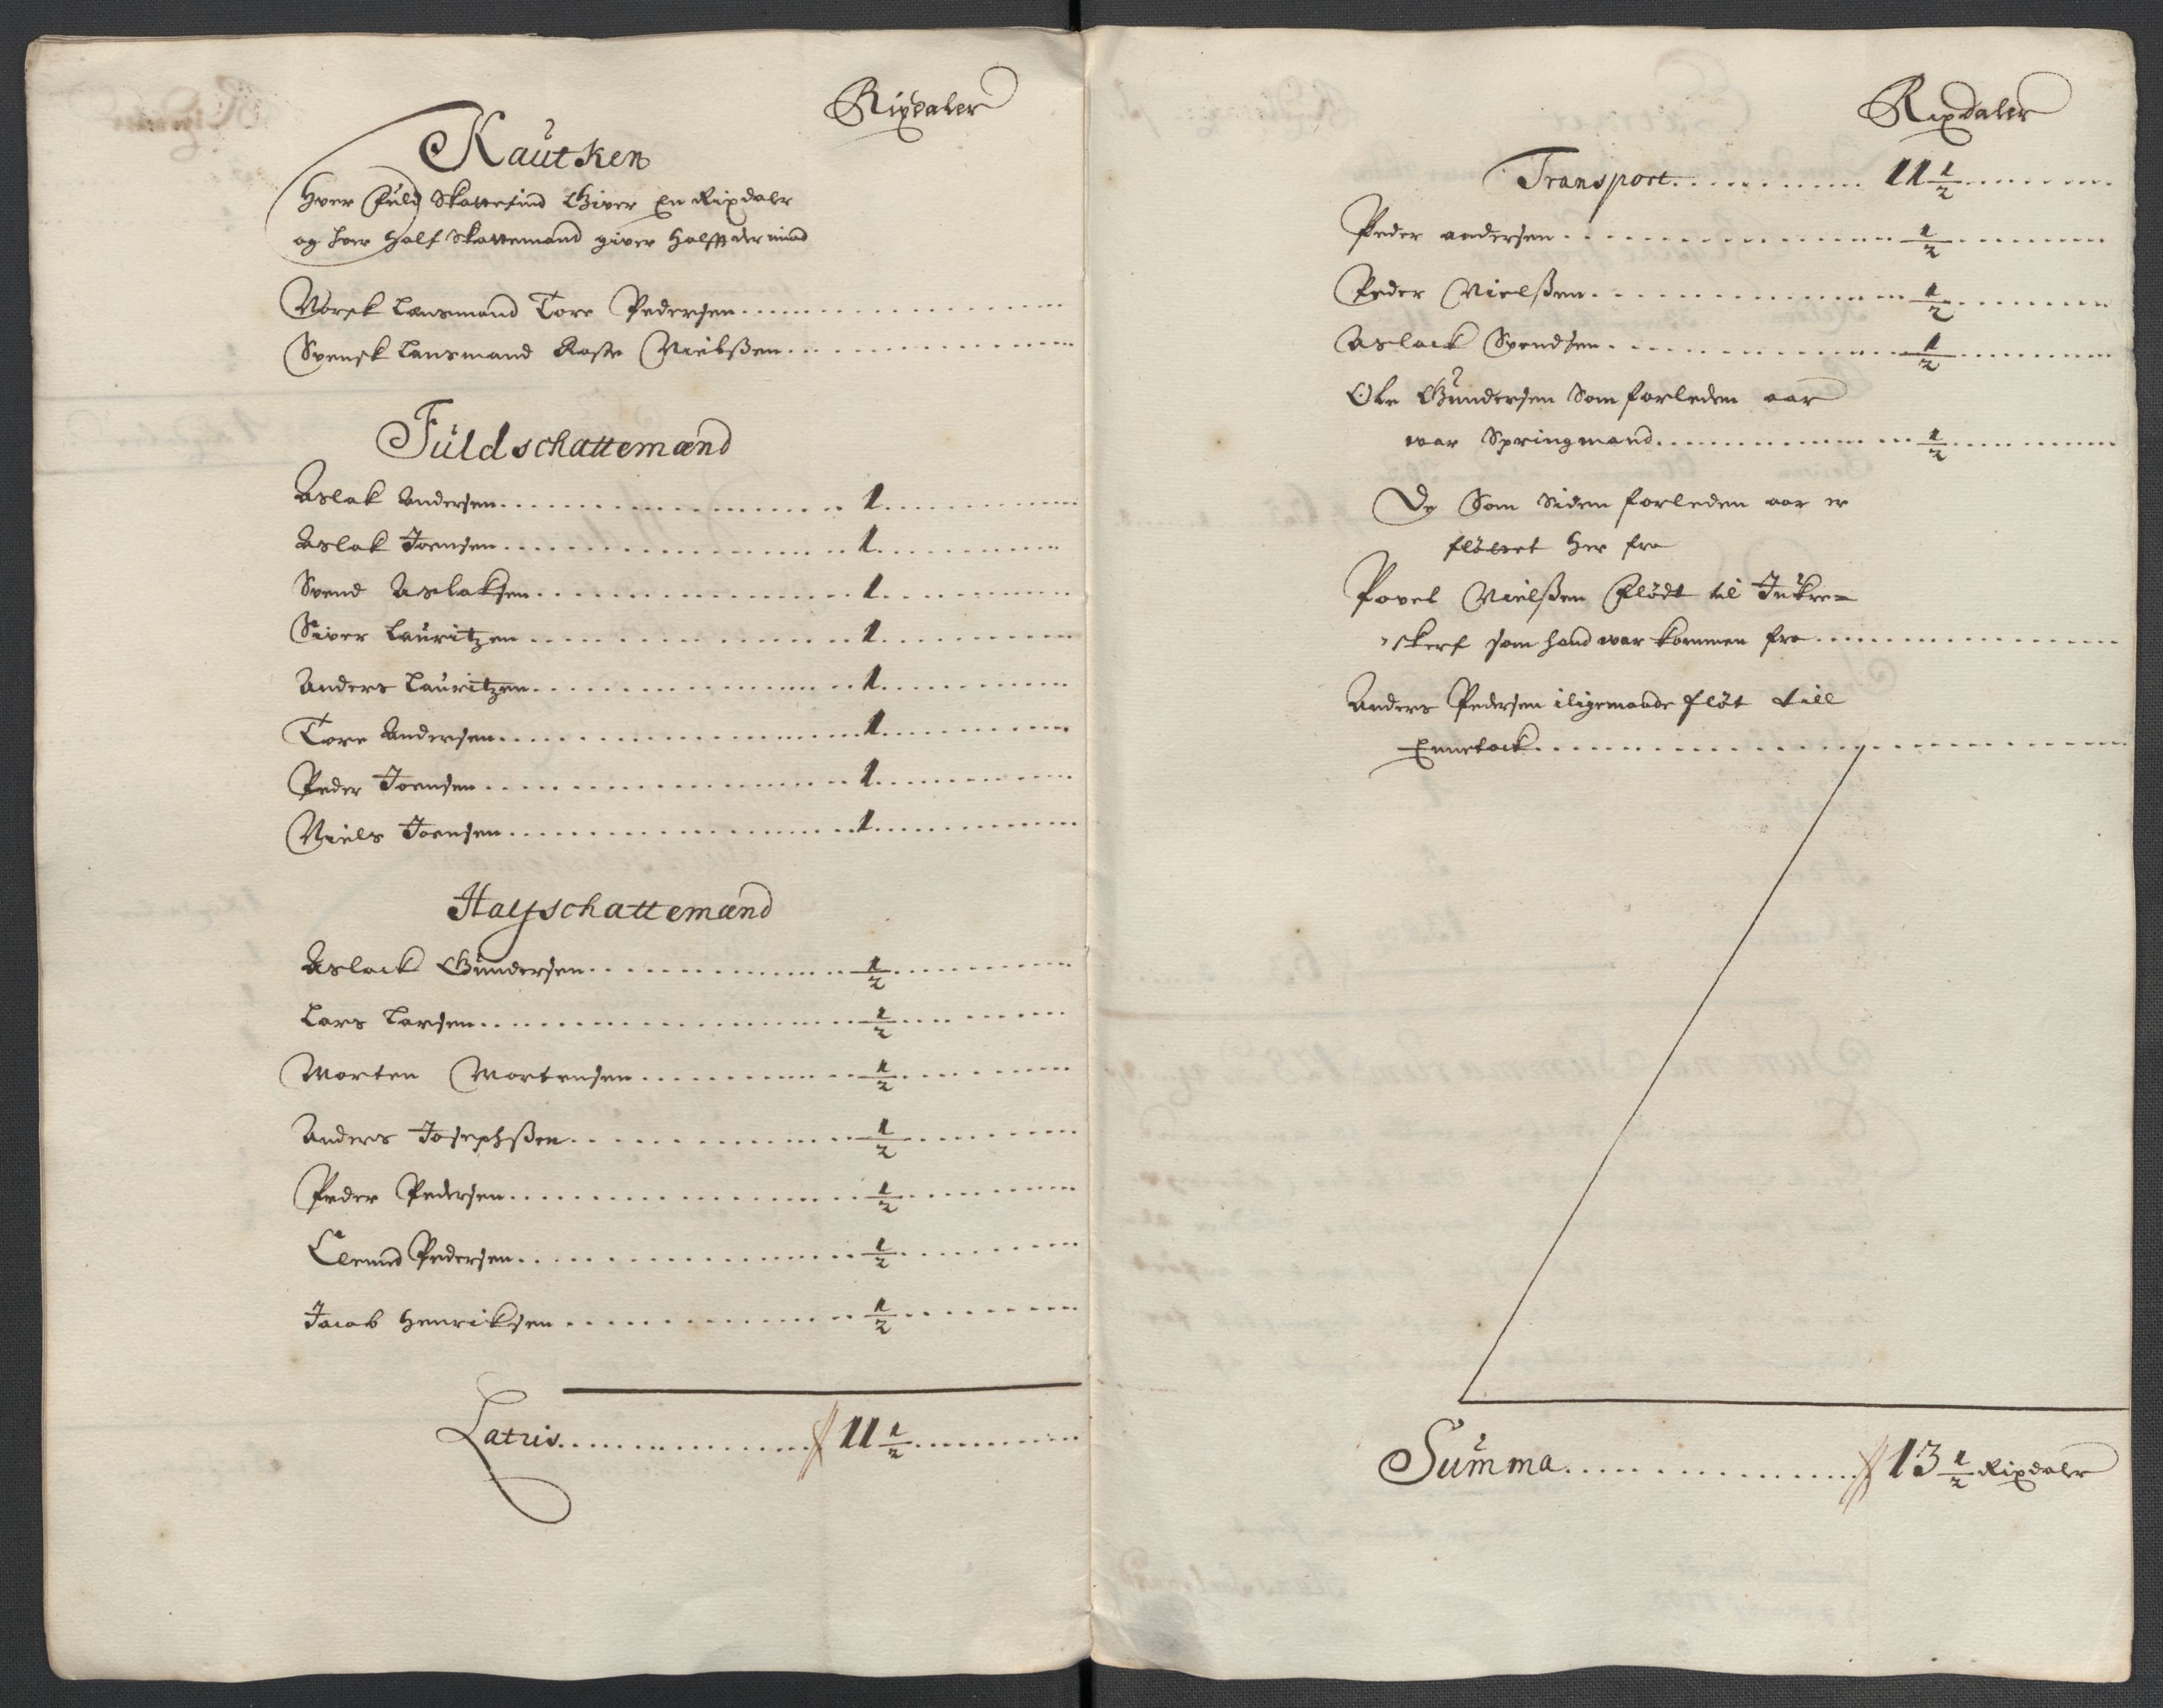 Rixdaler
Kautken
Hver Fuld Skattefind Giver En Rixdaler
og hver Half Skattemand giver Halfft der imod
Norsk Lænsmand Tore Pedersen
Svensk Lænsmand Nielsßen
Fuldschattemænd
Aslak Andersen 1
Aslak Joensen 1
Svend Aslaksen 1
Siver Lauritzen 1
Anders Lauritzen 1
Tore Andersen 1
Peder Joensen 1
Niels Joensen 1
Halfschattemænd
Aslack Gundersen 1/2
Lars Larsen 1/2
Morten Mortensen 1/2
Anders Josephßen 1/2
Peder Pedersen 1/2
Clemed Pedersen 1/2
Jacob Henriksen 1/2
Latris 11 1/2
Rixdaler
Transport 11 1/2
Peder Andersen 1/2
Peder Nielßen 1/2
Aslack Svendsen 1/2
Ole Gundersen Som forleden aar
war Springmand 1/2
De Som Siden forleden aar er
fløttet her fra
Povel Nielßen Flødt til Jukre-
skerf som hand war kommen fra
Anders Pedersen iligemaade fløt till
Ennetack
Summa 13 1/2 Rixdaler